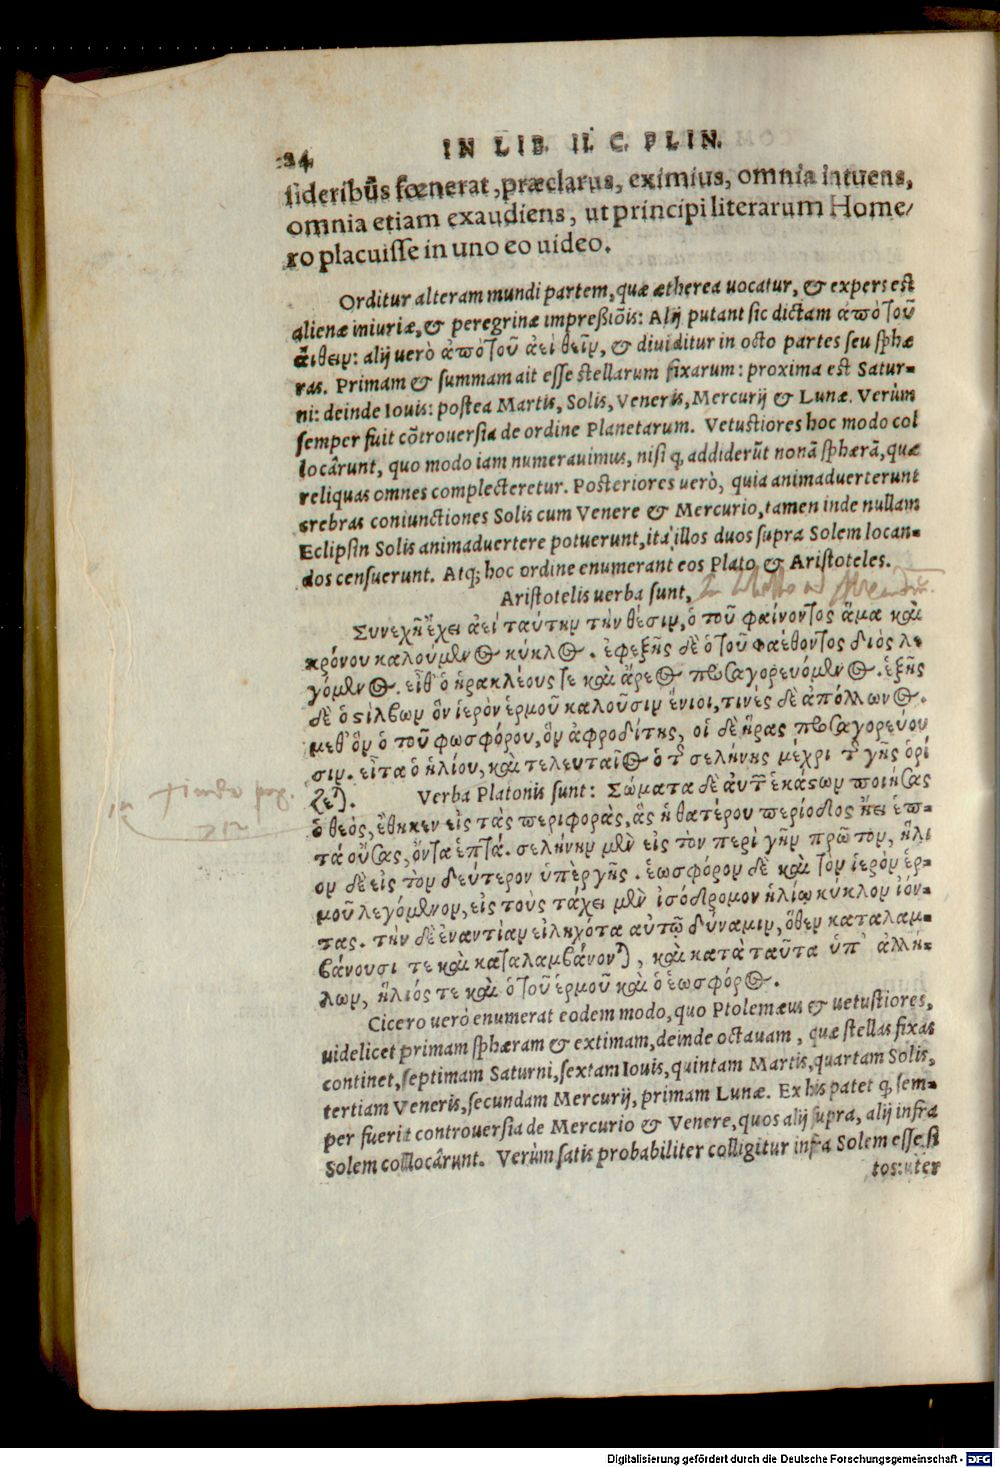 24 IN LIB. II. C. PLIN.
sideribus fœnerat, præclarus, eximius, omnia intuens,
omnia etiam exaudiens, ut principi literarum Home/
ro placuisse in uno eo uideo.
Orditur alteram mundi partem, quæ ætherea uocatur, & expers est
alienæ iniuriæ, & peregrinæ impreßiōis: Alij putant sic dictam ἀπὸ τοῦ
ἄιθειν: alij uerò ἀπὸ τοῦ ἀεὶ θεῖν, & diuiditur in octo partes seu sphæ
ras. Primam & summam ait esse stellarum fixarum: proxima est Satur-
ni: deinde Iouis: postea Martis, Solis, Veneris, Mercurij & Lunæ. Verùm
semper fuit cōtrouersia de ordine Planetarum. Vetustiores hoc modo col
locârunt, quo modo iam numerauimus, nisi q, addiderūt nonā sphærā, quæ
reliquas omnes complecteretur. Posteriores uerò, quia animaduerterunt
crebras coniunctiones Solis cum Venere & Mercurio, tamen inde nullam
Eclipsin Solis animaduertere potuerunt, ita illos duos supra Solem locan-
dos censuerunt. Atq; hoc ordine enumerant eos Plato & Aristoteles.
Aristotelis uerba sunt,
Συνεχῆ ἔχει ἀεὶ ταύτην τὴν θέσιν, ὁ τοῦ φαίνοντος ἅμα καὶ
κρόνου καλούμενος κύκλος. ἐφεξῆς δὲ ὁ τοῦ φαέθοντος διὸς λε
γόμενος. εἶθ' ὁ ἡρακλέους τε καὶ ἄρεος προσαγορευόμενος. ἑξῆς
δὲ ὁ στίλβων ὃν ἱερὸν ἑρμοῦ καλοῦσιν ἔνιοι, τινὲς δὲ ἀπόλλωνος.
μεθ' ὃν ὁ τοῦ φωσφόρου, ὃν ἀφροδίτης, οἱ δὲ ἥρας προσαγορεύου
σιν. εἶτα ὁ ἡλίου, καὶ τελευταῖος ὁ τῆς σελήνης μέχρι τῆς γῆς ὁρί
ζεται. Verba Platonis sunt: Σώματα δὲ αὐτῶν ἑκάστων ποιήσας
ὁ θεὸς, ἔθηκεν εἰς τὰς περιφορὰς, ἃς ἡ θατέρου περίοδος ᾔει ἑπ-
τὰ οὔσας, ὄντα ἑπτά. σελήνην μὲν εἰς τὸν περὶ γῆν πρῶτον, ἥλι
ον δὲ εἰς τὸν δεύτερον ὑπὲρ γῆς. ἑωσφόρον δὲ καὶ τὸν ἱερὸν ἑρ-
μοῦ λεγόμενον, εἰς τοὺς τάχει μὲν ἰσόδρομον ἡλίῳ κύκλον ἰόν-
τας. τὴν δὲ ἐναντίαν εἰληχότα αὐτῷ δύναμιν, ὅθεν καταλαμ-
βάνουσι τε καὶ καταλαμβάνονται, καὶ κατὰ ταῦτα ὑπ' ἀλλή-
λων, ἥλιός τε καὶ ὁ τοῦ ἑρμοῦ καὶ ὁ ἑωσφόρος.
Cicero uerò enumerat eodem modo, quo Ptolemæus & uetustiores,
uidelicet primam sphæram & extimam, deinde octauam, quæ stellas fixas
continet, septimam Saturni, sextam Iouis, quintam Martis, quartam Solis,
tertiam Veneris, secundam Mercurij, primam Lunæ. Ex his patet q, sem-
per fuerit controuersia de Mercurio & Venere, quos alij supra, alij infra
Solem collocârunt. Verùm satis probabiliter colligitur infra Solem esse si
tos: uter
Digitalisierung gefördert durch die Deutsche Forschungsgemeinschaft - DFG